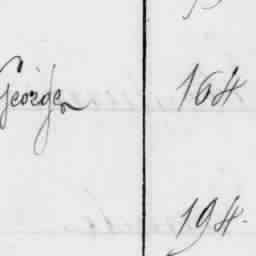 George 164
194.